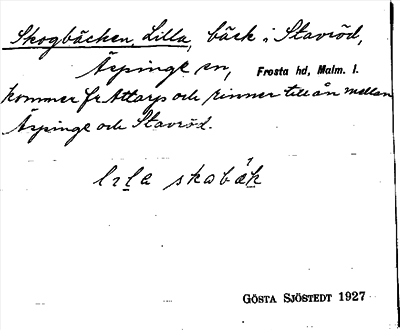 Skogbäcken, Lilla, bäck i Stavröd,
Äspinge sn, Frosta hd, Malm. l.
kommer fr Attarp och rinner till ån mellan
Äspinge och Stavröd.
lɩla skobäk
GÖSTA SJÖSTEDT 1927